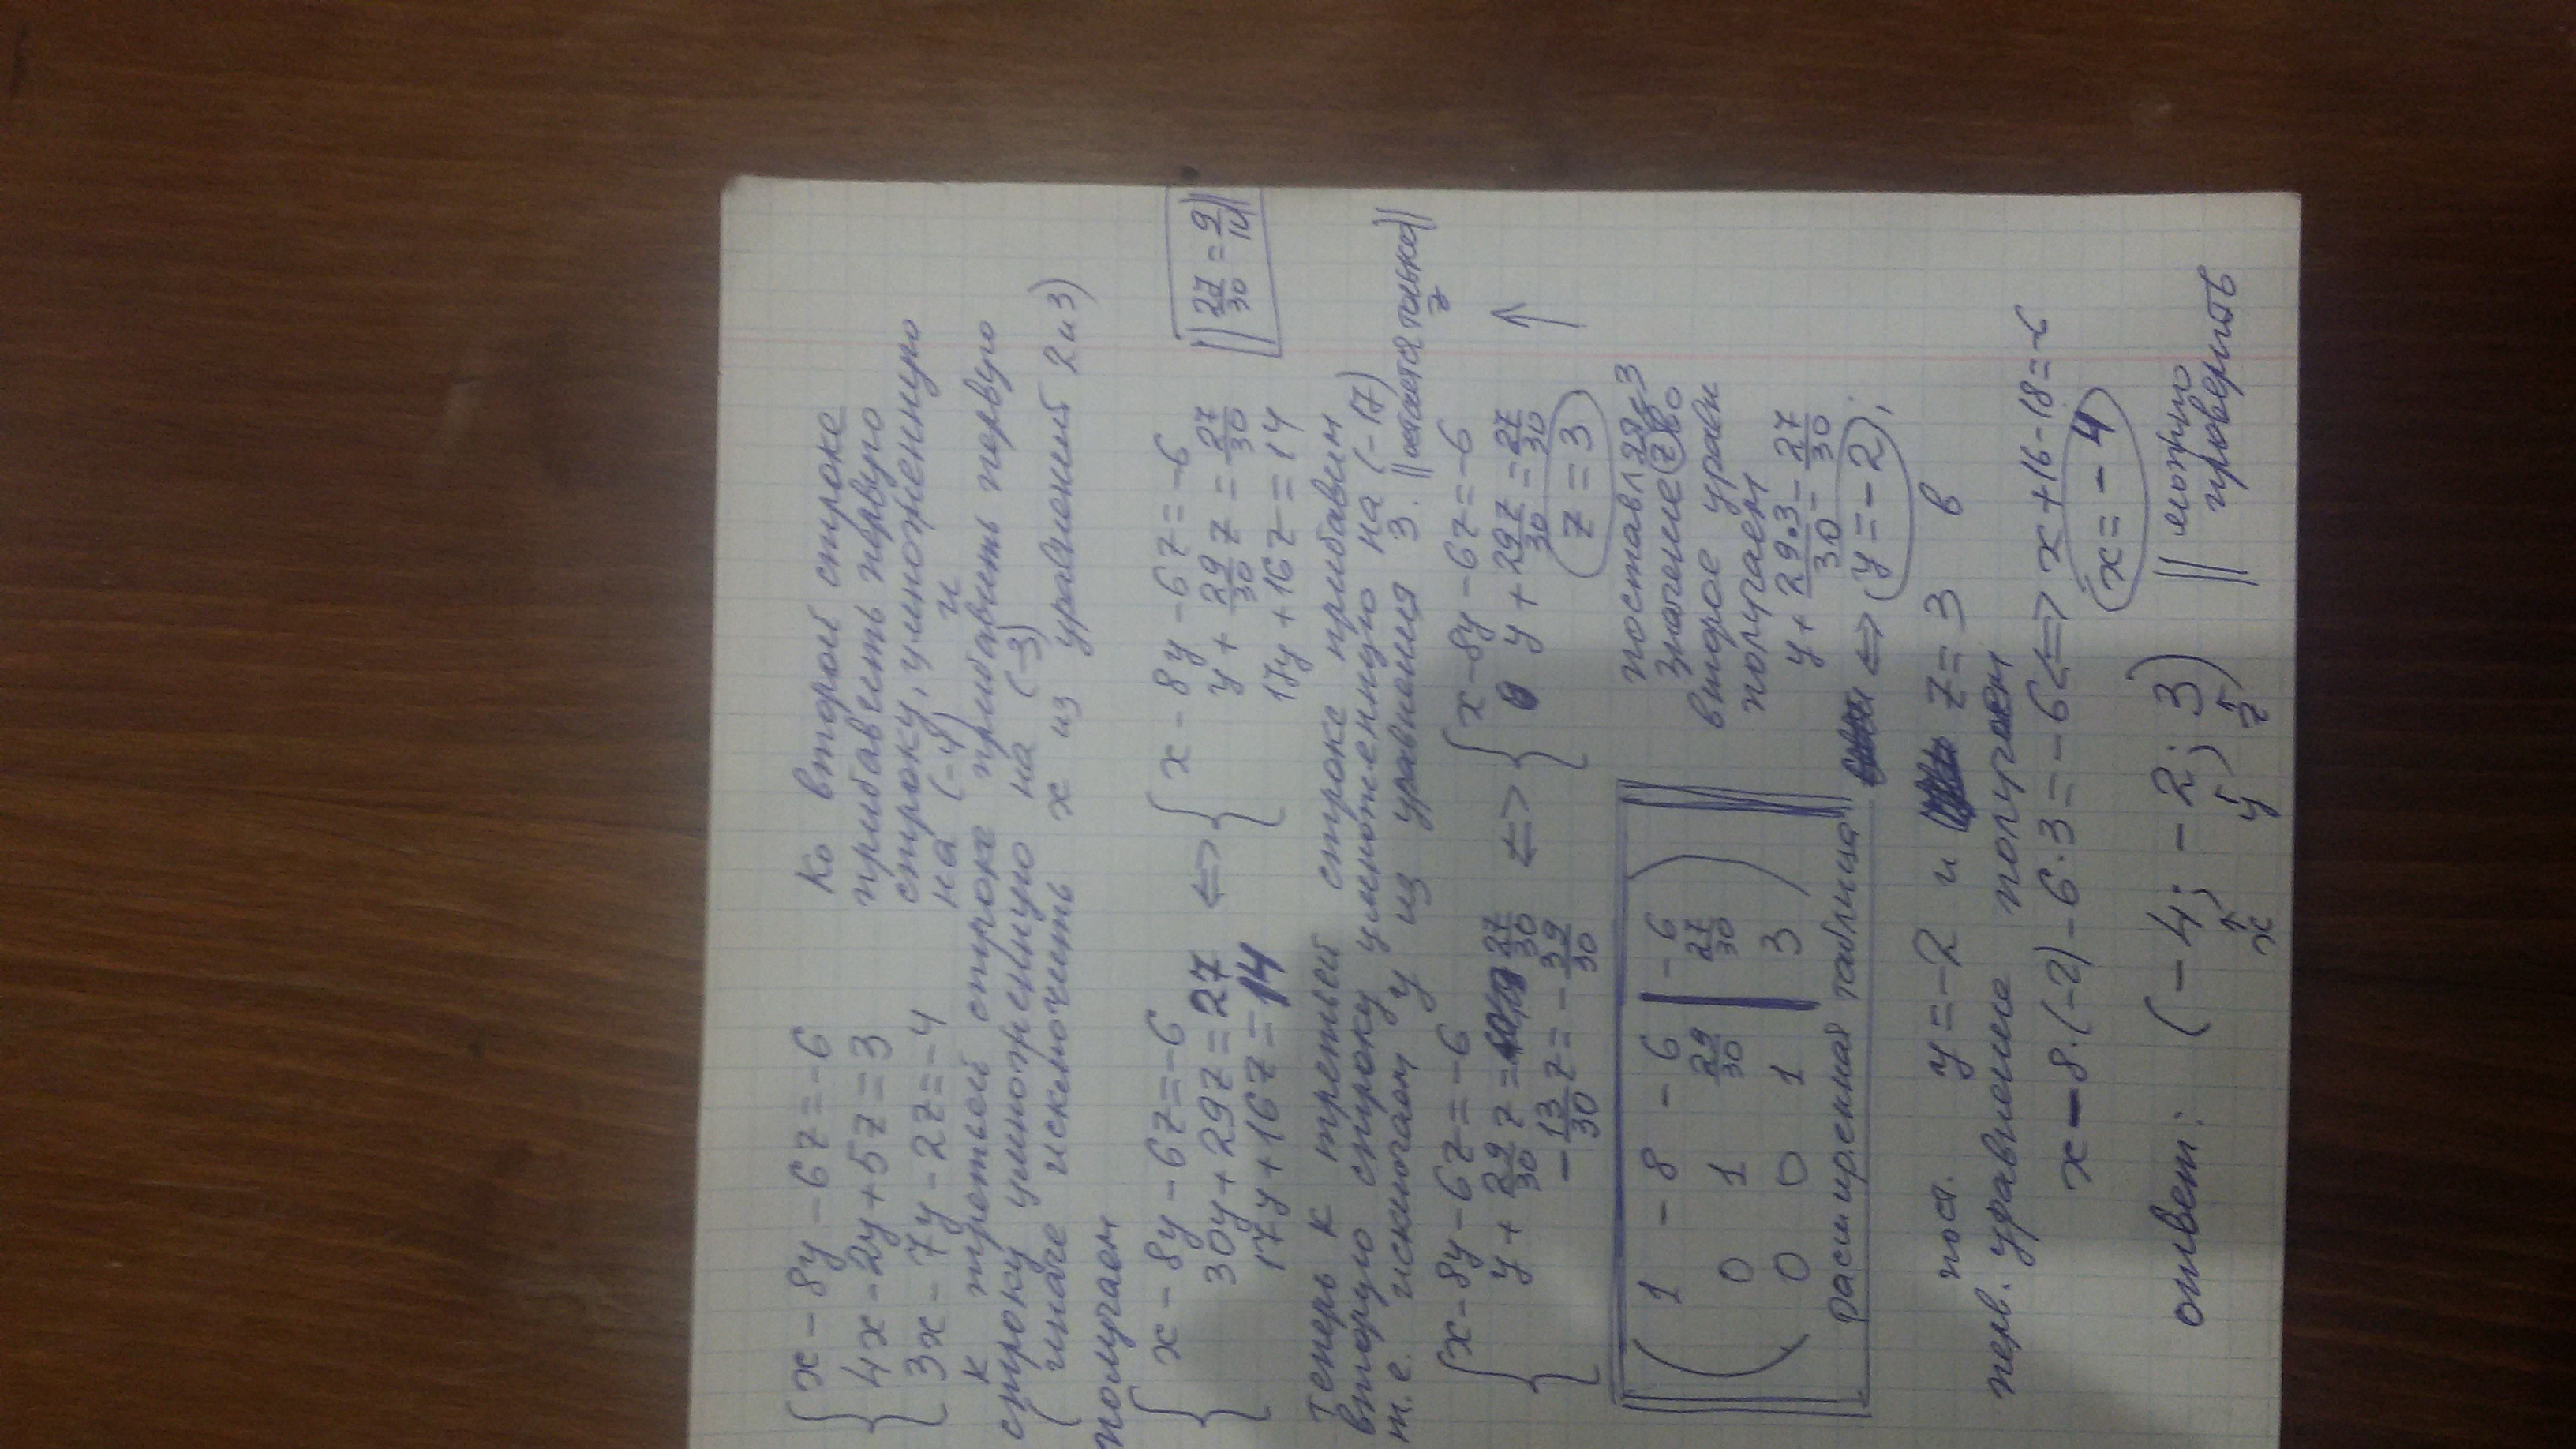 { x - 8y - 6z = -6
4x - 2y + 5z = 3
3x - 7y - 2z = -4
Ко второй строке
прибавить первую
строку, умноженную
на (-4) и
к третьей строке прибавить первую
строку умноженную на (-3)
(иначе исключить x из уравнений 2 и 3)
получаем
{ x - 8y - 6z = -6
30y + 29z = 27
17y + 16z = 14
<=> { x - 8y - 6z = -6
y + 29/30 z = 27/30
17y + 16z = 14
|| 27/30 = 9/14 ||
Теперь к третьей строке прибавим
вторую строку умноженную на (-17)
т.е. исключаем y из уравнения 3. || остается только z ||
{ x - 8y - 6z = -6
y + 29/30 z = 27/30
- 13/30 z = - 39/30
<=> { x - 8y - 6z = -6
y + 29z/30 = 27/30
z = 3
↑
( 1 -8 -6 | -6
0 1 29/30 | 27/30
0 0 1 | 3 )
расширенная таблица
значение z во
второе уравн
получаем
y + 29·3/30 = 27/30
<=> y = -2;
y = -2 и z = 3 в
перв. уравнение получаем
x - 8·(-2) - 6·3 = -6 <=> x + 16 - 18 = -6
x = -4
ответ: (-4; -2; 3)
x y z
|| можно
проверить